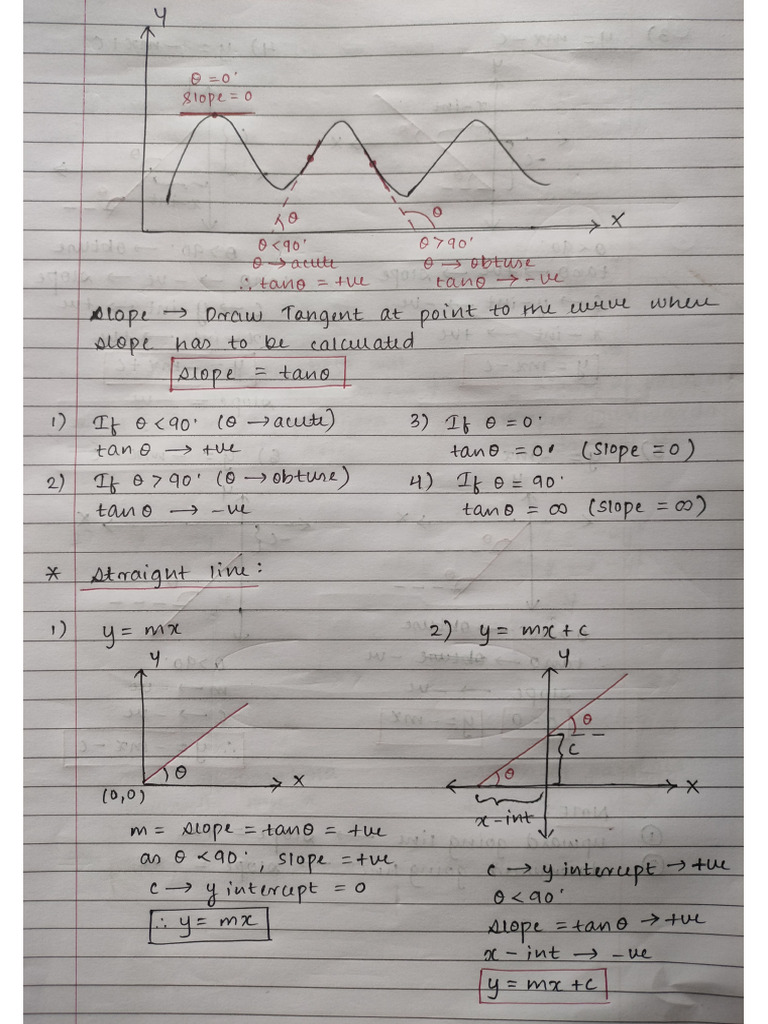 Y
θ = 0°
slope = 0
θ
θ
X
θ < 90°
θ → acute
∴ tanθ = +ve
θ > 90°
θ → obtuse
tanθ → -ve
slope → Draw Tangent at point to the curve where
slope has to be calculated
slope = tanθ
1) If θ < 90° (θ → acute)
tan θ → +ve
2) If θ > 90° (θ → obtuse)
tan θ → -ve
3) If θ = 0°
tanθ = 0 (slope = 0)
4) If θ = 90°
tanθ = ∞ (slope = ∞)
* straight line:
1) y = mx
Y
θ
X
(0,0)
m = slope = tanθ = +ve
as θ < 90°, slope = +ve
c → y intercept = 0
∴ y = mx
2) y = mx + c
Y
θ
c
θ
X
x-int
c → y intercept → +ve
θ < 90°
slope = tanθ → +ve
x-int → -ve
y = mx + c